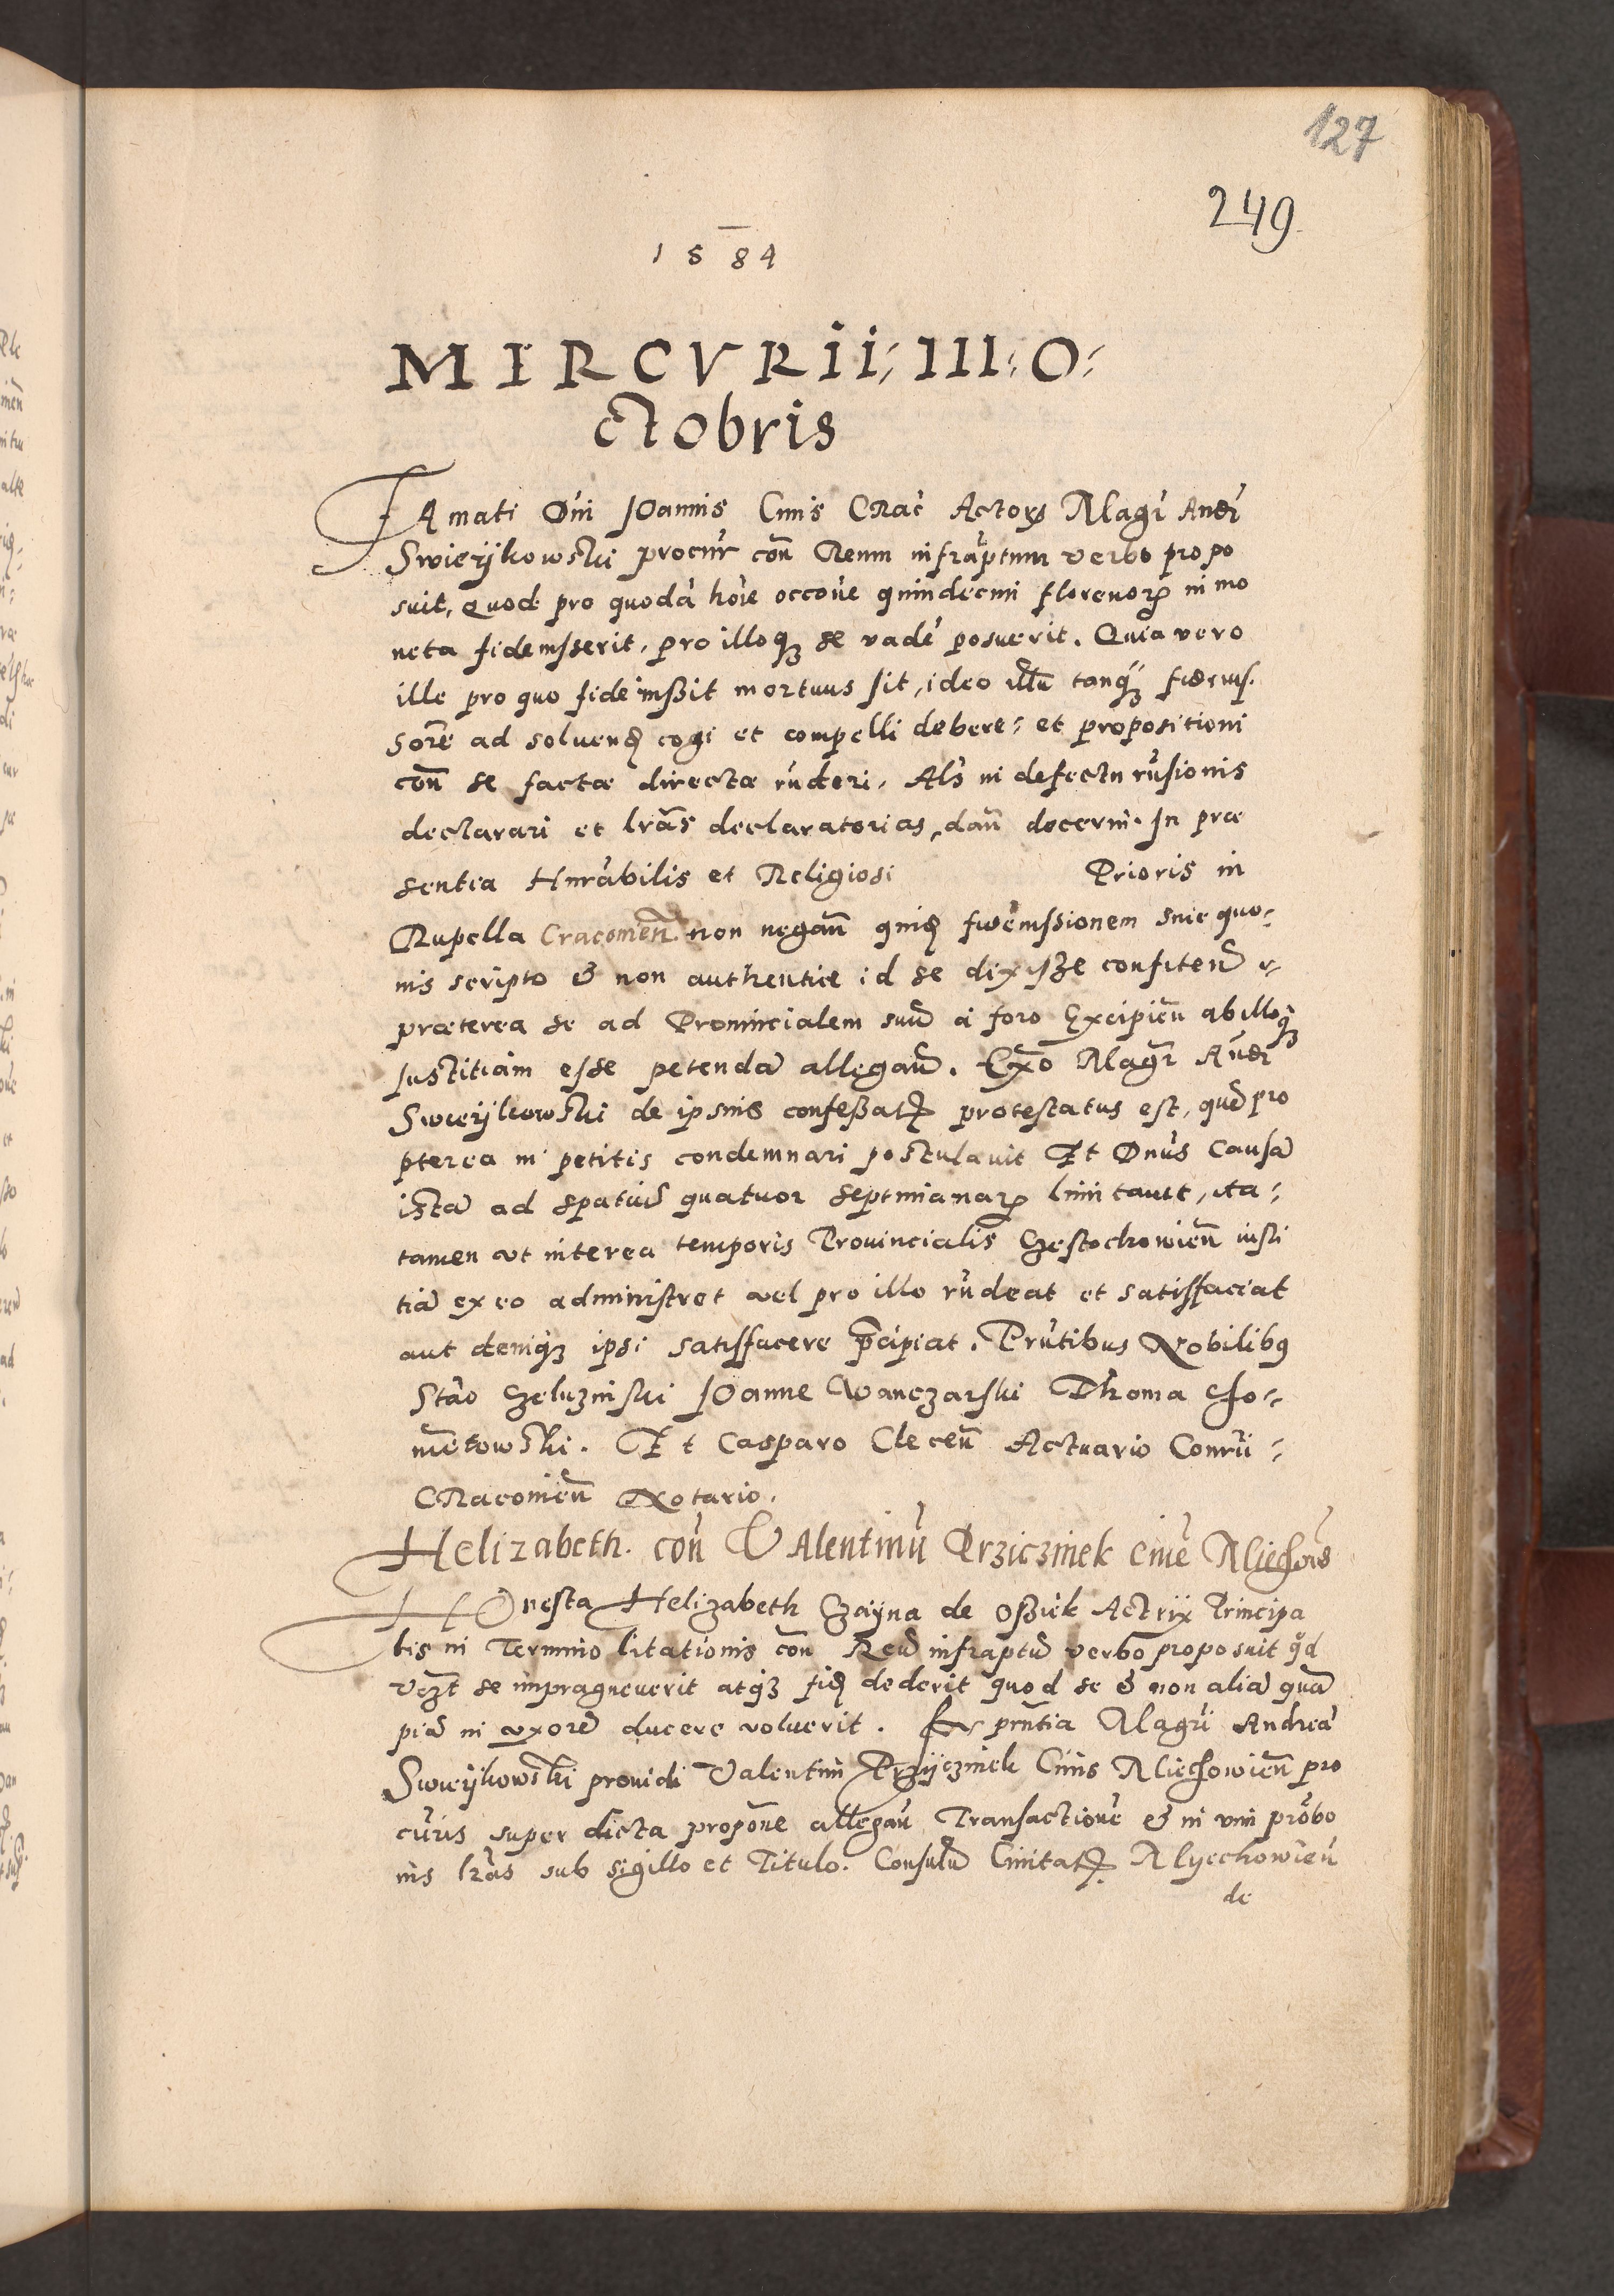 127
249
1584
MIRCVRII III O
ctobris
FAmati Dni Joannis Ciuis CRac Actoris Magri Andr
Swierijkowski procur con Reum infraptum verbo propo
suit, Quod pro quodā hoie occone quindecim florenorȝ in mo
neta fideiusserit, pro illoqȝ se vadē posuerit. Quia vero
ille pro quo fideiussit mortuus sit, ideo illū tanqȝ fideius.
sorē ad soluend cogi et compelli debere, et propositioni
con se factæ directæ rnderi, Als in defectu rnsionis
declarari et lrās declaratorias dan decerni. In præ
sentia Hnrabilis et Religiosi Prioris in
Rupella Cracouien non negan quid fideiussionem sine quo
uis scripto & non authentice id se dixisse confiten
præterea se ad Prouincialem suū a foro Excipien ab illoqȝ
iustitiam esse petendā allegan. Exo Magr Andr
Swierijkowski de ipsius confessatȝ protestatus est, quē pro
pterea in petitis condemnari postulauit Et Dnus Causā
istā ad spatiū quatuor septimanarȝ limitauit, ita
tamen vt interea temporis Prouincialis Czestochowien iusti
tiā ex eo administret vel pro illo rndeat et satisfaciat
aut deniqȝ ipsi satisfacere præcipiat. Prntibus Nobilibȝ
Stāo Czeluzinski Joanne Wanczarski Thoma Cho
mētowski. Et Casparo Clecen Actuario Conrii
CRacouien Notario.
Helizabeth con VAlentinū Przieziniek ciuē Miechouiē
HOnesta Helizabeth Czaijna de Ossiek Actrix Principa
lis in Termino litationis con Reū infraptū verbo proposuit qd
vczt se impragneuerit atqȝ fid dederit quod se & non aliā quā
piā in vxorē ducere voluerit. Ex prntia Magri Andreæ
Swierijkowski prouidi Valentini Przijeziniek Ciuis Miechowien pro
curis super dicta propone allegan Transactione & in vim probo
nis lrās sub sigillo et Titulo. Consulū Ciuitatȝ Miyechowien
de